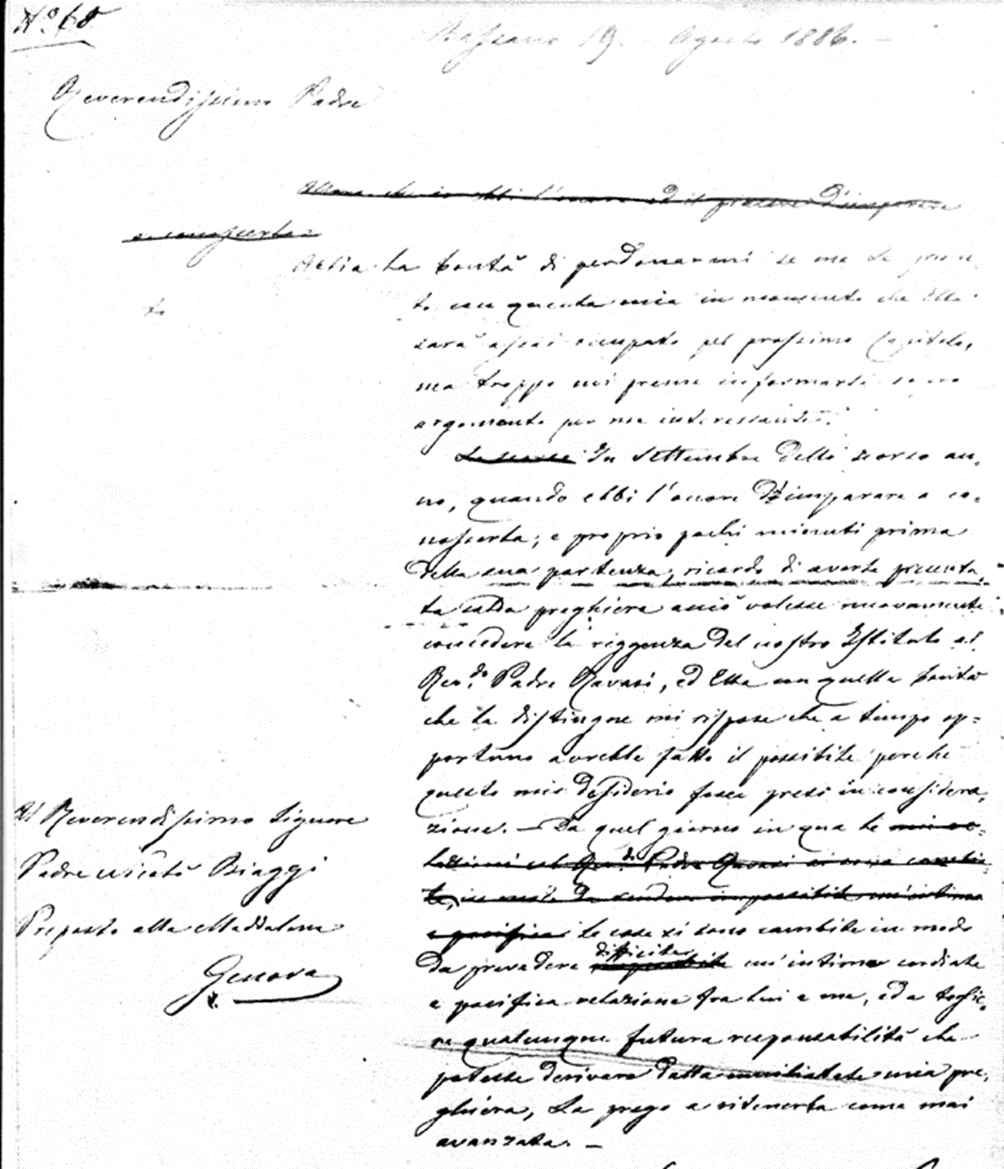 N.° 68
Bassano 19. Agosto 1886. —
Reverendissimo Padre
ebbi l'onore ed il piacere d'imparare
a conoscerla
Abbia la bontà di perdonarmi se me Le presen-
to con questa mia in momento che Ella
sarà assai occupato pel prossimo Capitolo,
ma troppo mi preme informarla sopra
argomento per me interessante.
In Settembre dello scorso an-
no, quando ebbi l'onore d'imparare a co-
noscerla, e proprio pochi minuti prima
della sua partenza, ricordo di averle presenta-
ta calda preghiera acciò volesse nuovamente
concedere la reggenza del nostro Istituto al
Rev.do Padre Ravasi, ed Ella con quella bontà
che la distingue mi rispose che a tempo op-
portuno avrebbe fatto il possibile perchè
questo mio desiderio fosse preso in considera-
zione. — Da quel giorno in qua le
Rev.do Padre Ravasi
impossibile un'intima
e pacifica le cose si sono cambiate in modo
da prevedere difficile un'intima cordiale
e pacifica relazione fra lui e me, ed a toglie-
re qualunque futura responsabilità che
potesse derivare dalla mia pre-
ghiera, La prego a ritenerla come mai
avanzata. —
Al Reverendissimo Signore
Padre Biaggi
Preposto alla Maddalena
Genova